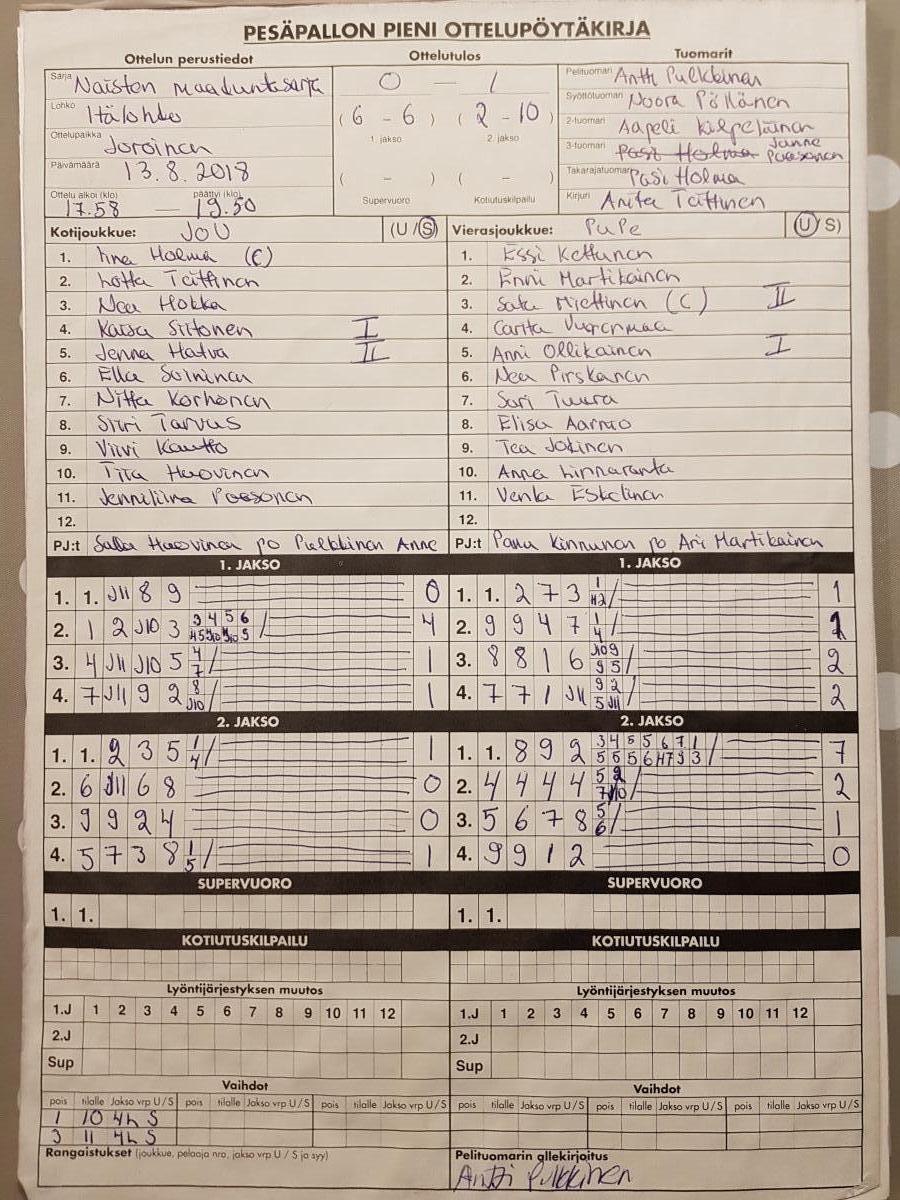 PESÄPALLON PIENI OTTELUPÖYTÄKIRJA
Ottelun perustiedot Ottelutulos Tuomarit
Sarja Naisten maakuntasarja 0 – 1 Pelituomari Antti Pulkkinen
Lohko Itälohko (6 – 6) (2 – 10) Syöttötuomari Noora Pöllänen
1. jakso 2. jakso 2-tuomari Aapeli Kilpeläinen
Ottelupaikka Joroinen 3-tuomari Pasi Holma Janne Paasonen
Päivämäärä 13.8.2018 ( – ) ( – ) Takarajatuomari Pasi Holma
Ottelu alkoi (klo) 17.58 – päättyi (klo) 19.50 Supervuoro Kotiutuskilpailu Kirjuri Anita Taittinen
Kotijoukkue: JoU (U/S) Vierasjoukkue: PuPe (U/S)
1. Holma (C) 1. Essi Kettunen
2. Lotta Taittinen 2. Enni Martikainen
3. Nea Hokka 3. Satu Miettinen (C) II
4. Kaisa Siitonen I 4. Carita Vuorenmaa
5. Jenna Hatva II 5. Anni Ollikainen I
6. Ella Soininen 6. Nea Pirskanen
7. Niita Korhonen 7. Sari Tuura
8. Siiri Tarvus 8. Elisa Aarnio
9. Viivi Kautto 9. Tea Jokinen
10. Tiia Haovinen 10. Anna Linnaranta
11. Jenniliina Paasonen 11. Venla Eskelinen
12. 12.
PJ:t Salla Haovinen po Pulkkinen Anne PJ:t Panu Kinnunen po Ari Martikainen
1. JAKSO 1. JAKSO
1. 1. J11 8 9 0 1. 1. 2 7 3 1
2. 1 2 J10 3 3 4 5 6 / 4 2. 9 9 4 7 1 4 / 1
3. 4 J11 J10 5 4 7 / 1 3. 8 8 1 6 J10 9 9 5 / 2
4. 7 J11 9 2 8 J10 / 1 4. 7 7 1 J11 9 2 5 J11 / 2
2. JAKSO 2. JAKSO
1. 1. 2 3 5 1 4 / 1 1. 1. 8 9 2 3 4 5 5 6 7 1 / 7
2. 6 J11 6 8 0 2. 4 4 4 4 2
3. 9 9 2 4 0 3. 5 6 7 8 5 6 / 1
4. 5 7 3 8 1 5 / 1 4. 9 9 1 2 0
SUPERVUORO SUPERVUORO
1. 1. 1. 1.
KOTIUTUSKILPAILU KOTIUTUSKILPAILU
Lyöntijärjestyksen muutos Lyöntijärjestyksen muutos
1.J 1 2 3 4 5 6 7 8 9 10 11 12 1.J 1 2 3 4 5 6 7 8 9 10 11 12
2.J 2.J
Sup Sup
Vaihdot Vaihdot
pois tilalle Jakso vrp U/S pois tilalle Jakso vrp U/S pois tilalle Jakso vrp U/S pois tilalle Jakso vrp U/S pois tilalle Jakso vrp U/S pois tilalle Jakso vrp U/S
1 10 4h S
3 11 4h S
Rangaistukset (joukkue, pelaaja nro, jakso vrp U / S ja syy) Pelituomarin allekirjoitus
Antti Pulkkinen